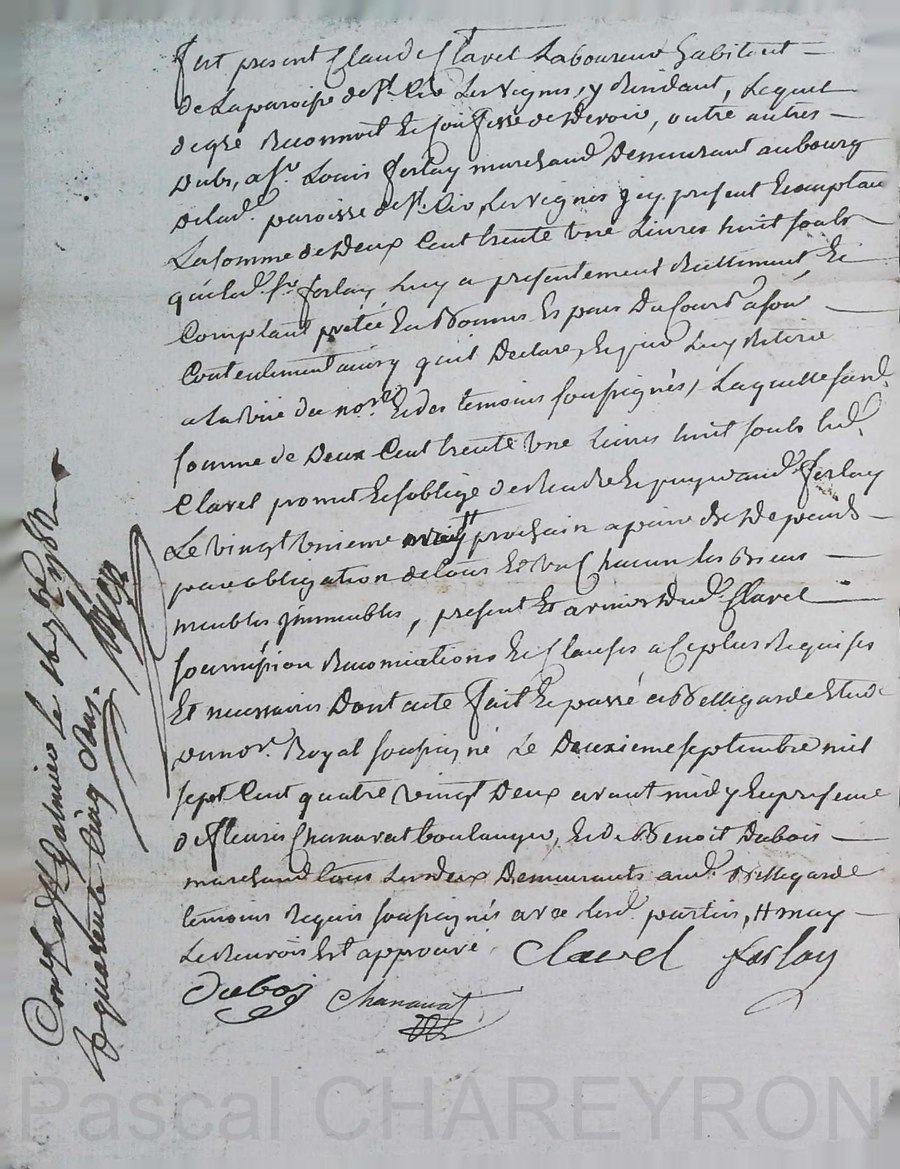 Fut present Claude Clavel Laboureur habitant
de La paroisse de St. Cir Les Vignes, y Residant, Lequel
de gré Reconnoit Et Confesse de Devoir, outre autres
Dubs, a Sr. Louis Ferlay marchand Demeurant au bourg
de lad. paroisse de St. Cir Les Vignes icy present Acceptan
La somme de Deux Cent trente Une Livres huit souls
que led. Sr. Ferlay Luy a presentement Reellement Et
Comptant pretée En Bonnes Espèces Du Cours a son
Contentement ainsy quil Declare, Et que Luy Retirée
a La vüe du nore. Et des temoins soussignés, Laquelle susd.
somme de Deux Cent trente Une Livres huit souls led.
Clavel promet Et soblige de Rendre Et payer aud. Ferlay
Le vingt unieme prochain a peine de Depends
par obligation de tous Et Un Chacun Ses Biens
meubles immeubles, present Et avenir Dud. Clavel
soumission Renonciations Et Clauses a Ce plus Requises
Et necessaires Dont acte Fait Et passé a Bellegarde Etude
du nore. Royal soussigné Le Deuxieme septembre mil
sept Cent quatre vingt Deux avant midy En presence
de Fleuris Chanavat boulanger, Et de Benoit Dubois
marchand tous Les deux Demeurants aud. Bellegarde
temoins Requis soussignés avec Lesd. parties, # may
Le Renvois Est approuvé
Clavel Ferlay
Dubois Chanavat
Conté à St. Galmier le 16 7bre 1782
R quarante Cinq Sols.
Pascal CHAREYRON